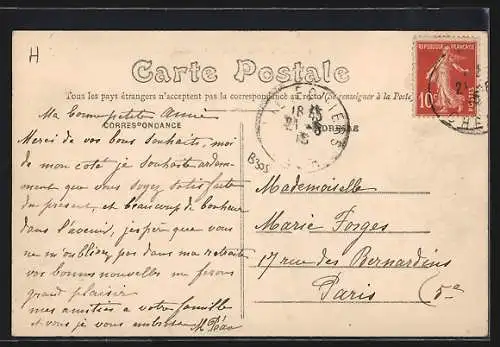 H
Carte Postale
Tous les pays étrangers n'acceptent pas la correspondance au recto (Se renseigner à la Poste)
REPUBLIQUE FRANÇAISE
10c
POSTES
Ma bonne petite Amie
CORRESPONDANCE
ADRESSE
18
B305
Merci de vos bons souhaits, moi
de mon coté je souhaite ardem-
ment que vous soyez satisfaite
du présent, et beaucoup de bonheur
dans l'avenir, j'espère que vous
ne m'oublierez pas dans ma retraite
vos bonnes nouvelles me ferons
grand plaisir
mes amitiés a votre famille
et vous je vous embrasse
Mademoiselle
Marie Forges
17 rue des Bernardins
Paris (5e